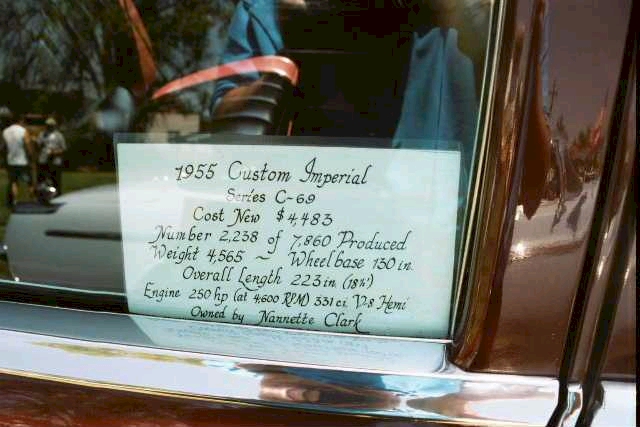 1955 Custom Imperial
Series C-69
Cost New $4,483
Number 2,238 of 7,860 Produced
Weight 4,565 ~ Wheelbase 130 in.
Overall Length 223 in (18½')
Engine 250 hp (at 4,600 RPM) 331 ci. V-8 Hemi
Owned by Nannette Clark